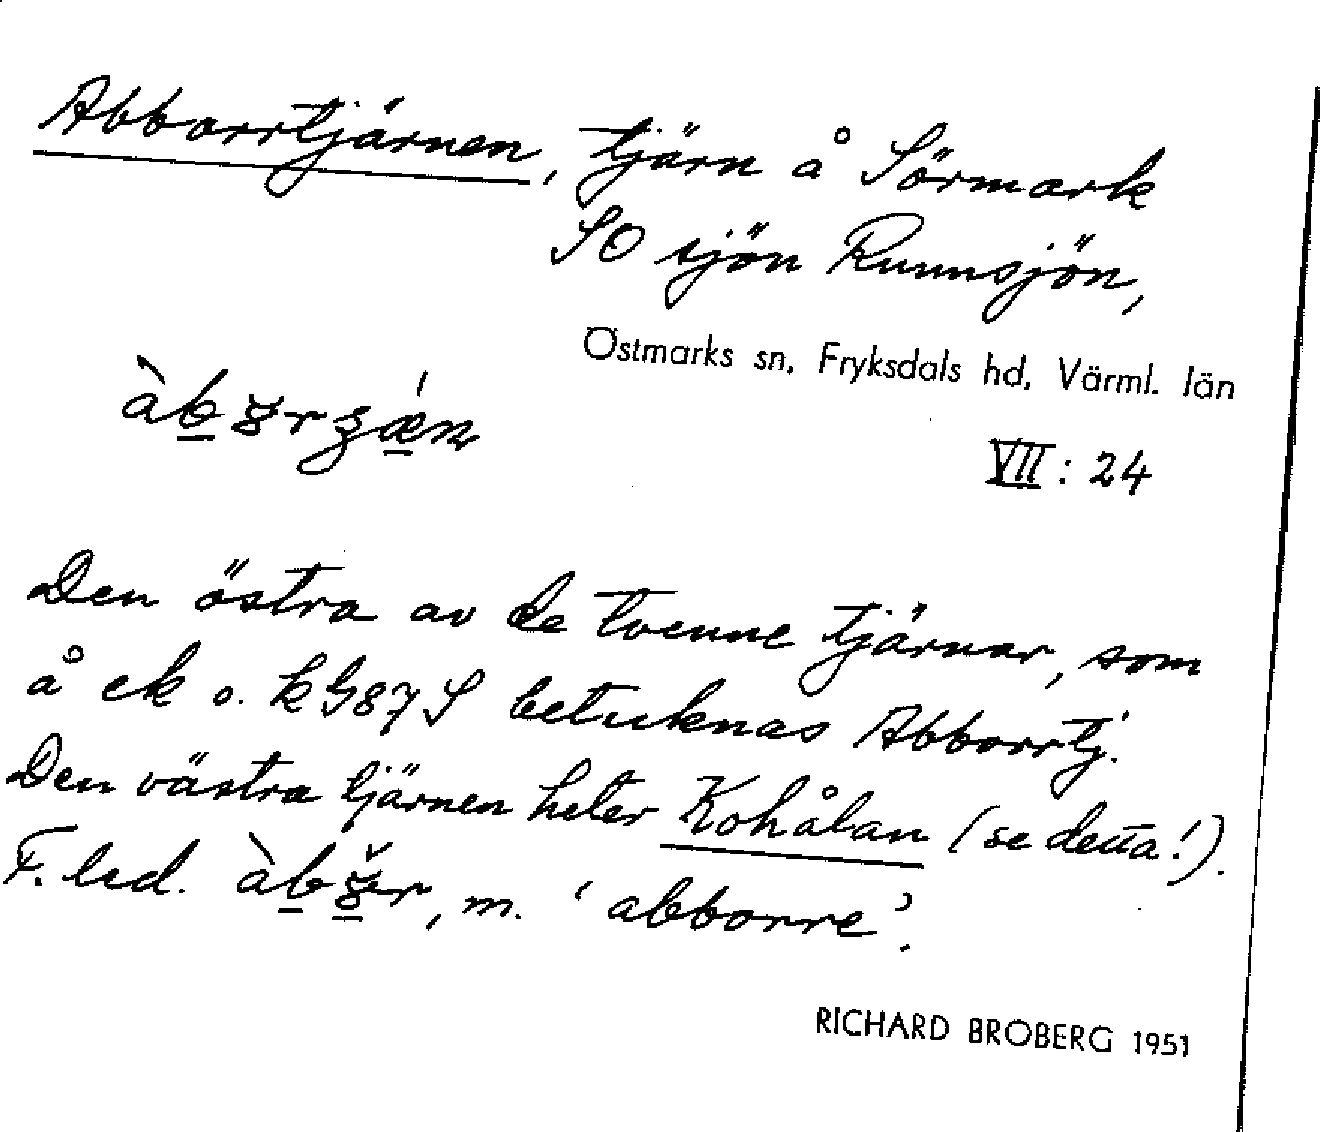 Abborrtjärnen, tjärn å Sörmark
SO sjön Runnsjön,
Östmarks sn, Fryksdals hd, Värml. län
VII: 24
Den östra av de tvenne tjärnar, som
å ek o. kG87S betecknas Abborrtj.
Den västra tjärnen heter Kohålan (se detta!).
F. led. , m. 'abborre'.
RICHARD BROBERG 1951